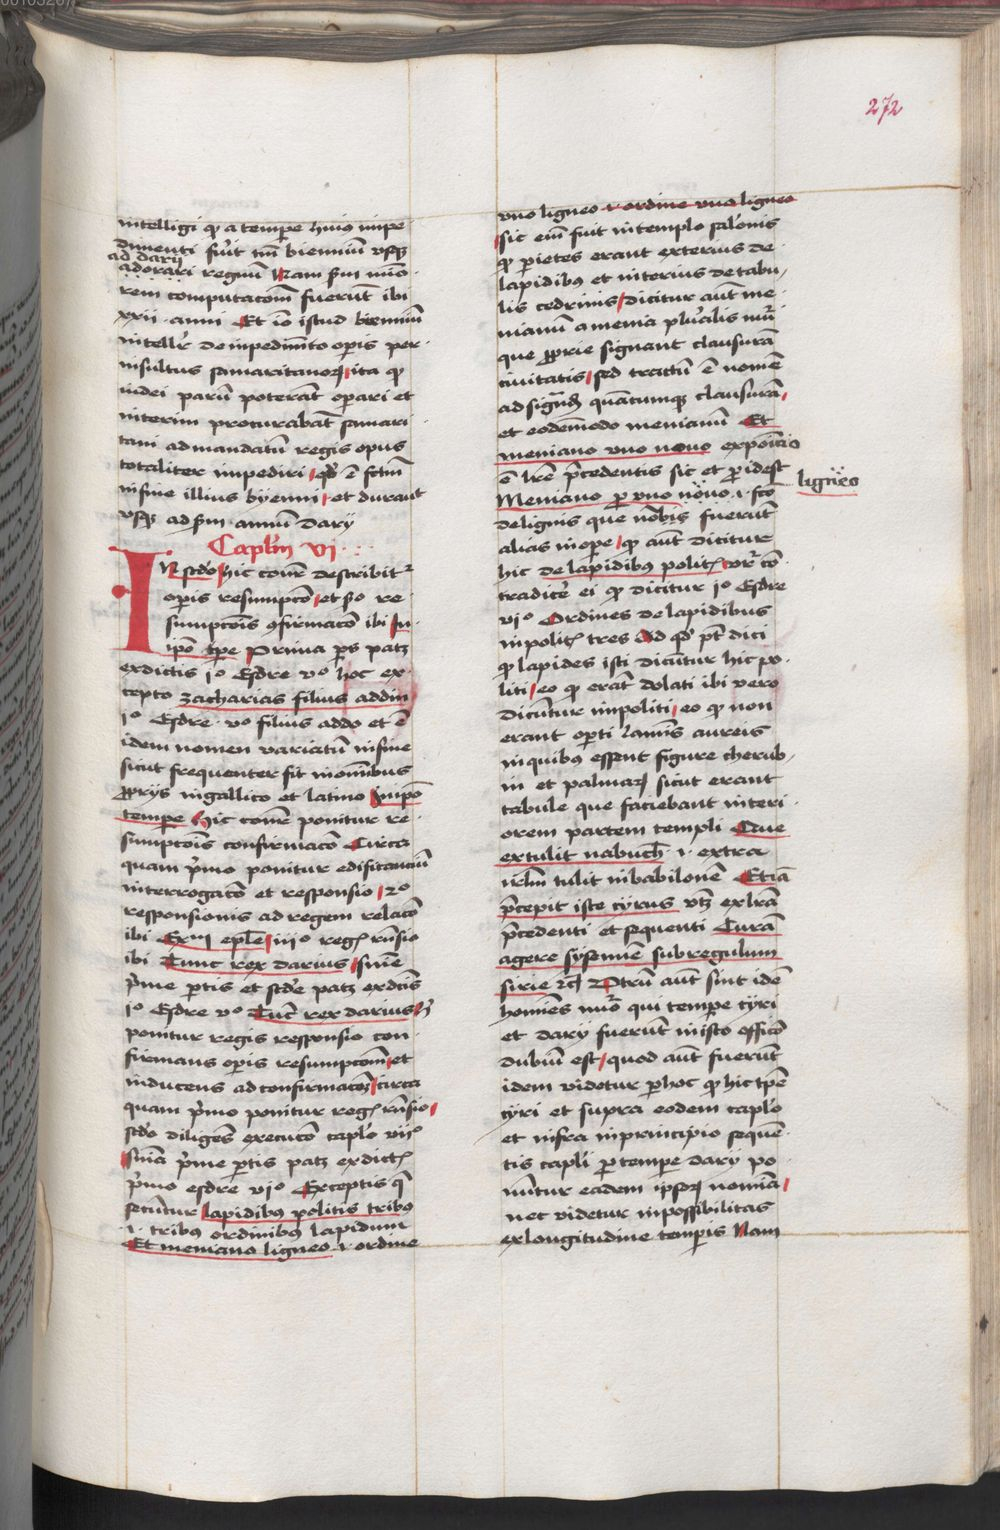 272
intelligi qꝫ a tempe huiꝰ impe
dimenti fūit tm̄ bienniū vsqꝫ
ad darij
adorari regnū Nam scdm mīo
rem computacōm fuerūt ibi
xxii · anni Et iō istud biennium
intellr̄ de impedimento opis per
insultus samaritanoꝝ ita qꝫ
iudei parū poterāt opari et
interim procurabāt samari
tani ad mandatū regis opus
totaliter impediri qd̄ ē fctm̄
in fine illius byennii et durauit
vsqꝫ ad scdm annū Dary
Caplm vi
IN scdo hic conīr describitr
opis resumptō et scdo re
sumptōis ꝯfirmacō ibi In
ipō tpe Prima ps patꝫ
ex dictis io Esdre vo hoc ex
cepto zacharias filius addin
io Esdre vo filius addo et ē
idem nomen variatū in fine
sicut frequenter fit in nomībus
ꝓprijs in gallico et latino In ipō
tempe hic conīr ponitur re
sumptōis confirmacō Circa
quam p̄mo ponitur edificanciū
interrogacō et responsio 2o
responsionis ad regem relacō
ibi Exm eple iijo regꝭ rn̄sio
ibi Tunc rex darius snīe
p̄me ptis et scde patꝫ ex dictis
io Esdre vo Tūc rex darius
ponitur regis responsio con
firmans opis resumptōm et
inducens ad confirmacōꝫ circa
quam p̄mo ponitur regꝭ rn̄sio
scdo diligēs execucō caplo vijo
snīa p̄me ptis patꝫ ex dictꝭ
p̄mo esdre vjo Exceptis q̄
secuntur lapidibꝰ politis tribꝰ
.i. tribꝰ ordinibꝰ lapidum
Et meniano ligneo .i. ordine
vno ligneo .i. ordine vno ligneo
sic em̄ fuit in templo salōnis
qꝫ pietes erant exterius de
lapidibꝰ et interius de tabu
lis cedrinis dicitur aūt me
nianū a menia plūalis nūī
que ꝓprie signant clausurā
ciuitatis sed tractū ē nomē
ad signād quātumqꝫ clausurā
et eodē modo menianū Et
meniano vno nouo expoicio
ē lrē p̄cedentis sic et p idest
Meniano p vno nouo .i. fco
ligneo
de lignis que nobis fuerūt
alias in ope qꝫ aūt dicitur
hic de lapidibꝰ politꝭ vidr̄ cō
tradicē ei qꝫ dicitur io Esdre
vjo Ordines de lapidibus
inpolitꝭ tres Ad qd pt dici
qꝫ lapides isti dicūtur hic po
liti eo qꝫ erāt dolati ibi vero
dicūtur impoliti eo qꝫ non
erant opti lamīs aureis
in quibꝰ essent figure cherub
in et palmaꝝ sicut erant
tabule que faciebant interi
orem partem templi Que
extulit nabuch .i. extra
irlm tulit in babilonē Etiā
p̄cepit iste cyrus vtꝫ ex lrā
p̄cedenti et sequenti Curā
agere sysennē subregulum
sirie rc̄ Vtrū aūt sint idē
homīes nūo qui tempe cyri
et dary fuerūt in isto officō
dubiū est quod aūt fuerūt
idem videtur p hoc qꝫ hic tpē
cyri et supra eodem caplo
et infra in principio sequē
tis capli p tempe dary po
nūtur eadem ipsoꝝ nomīa
nec videtur inpossibilitas
ex longitudine temporis Nam